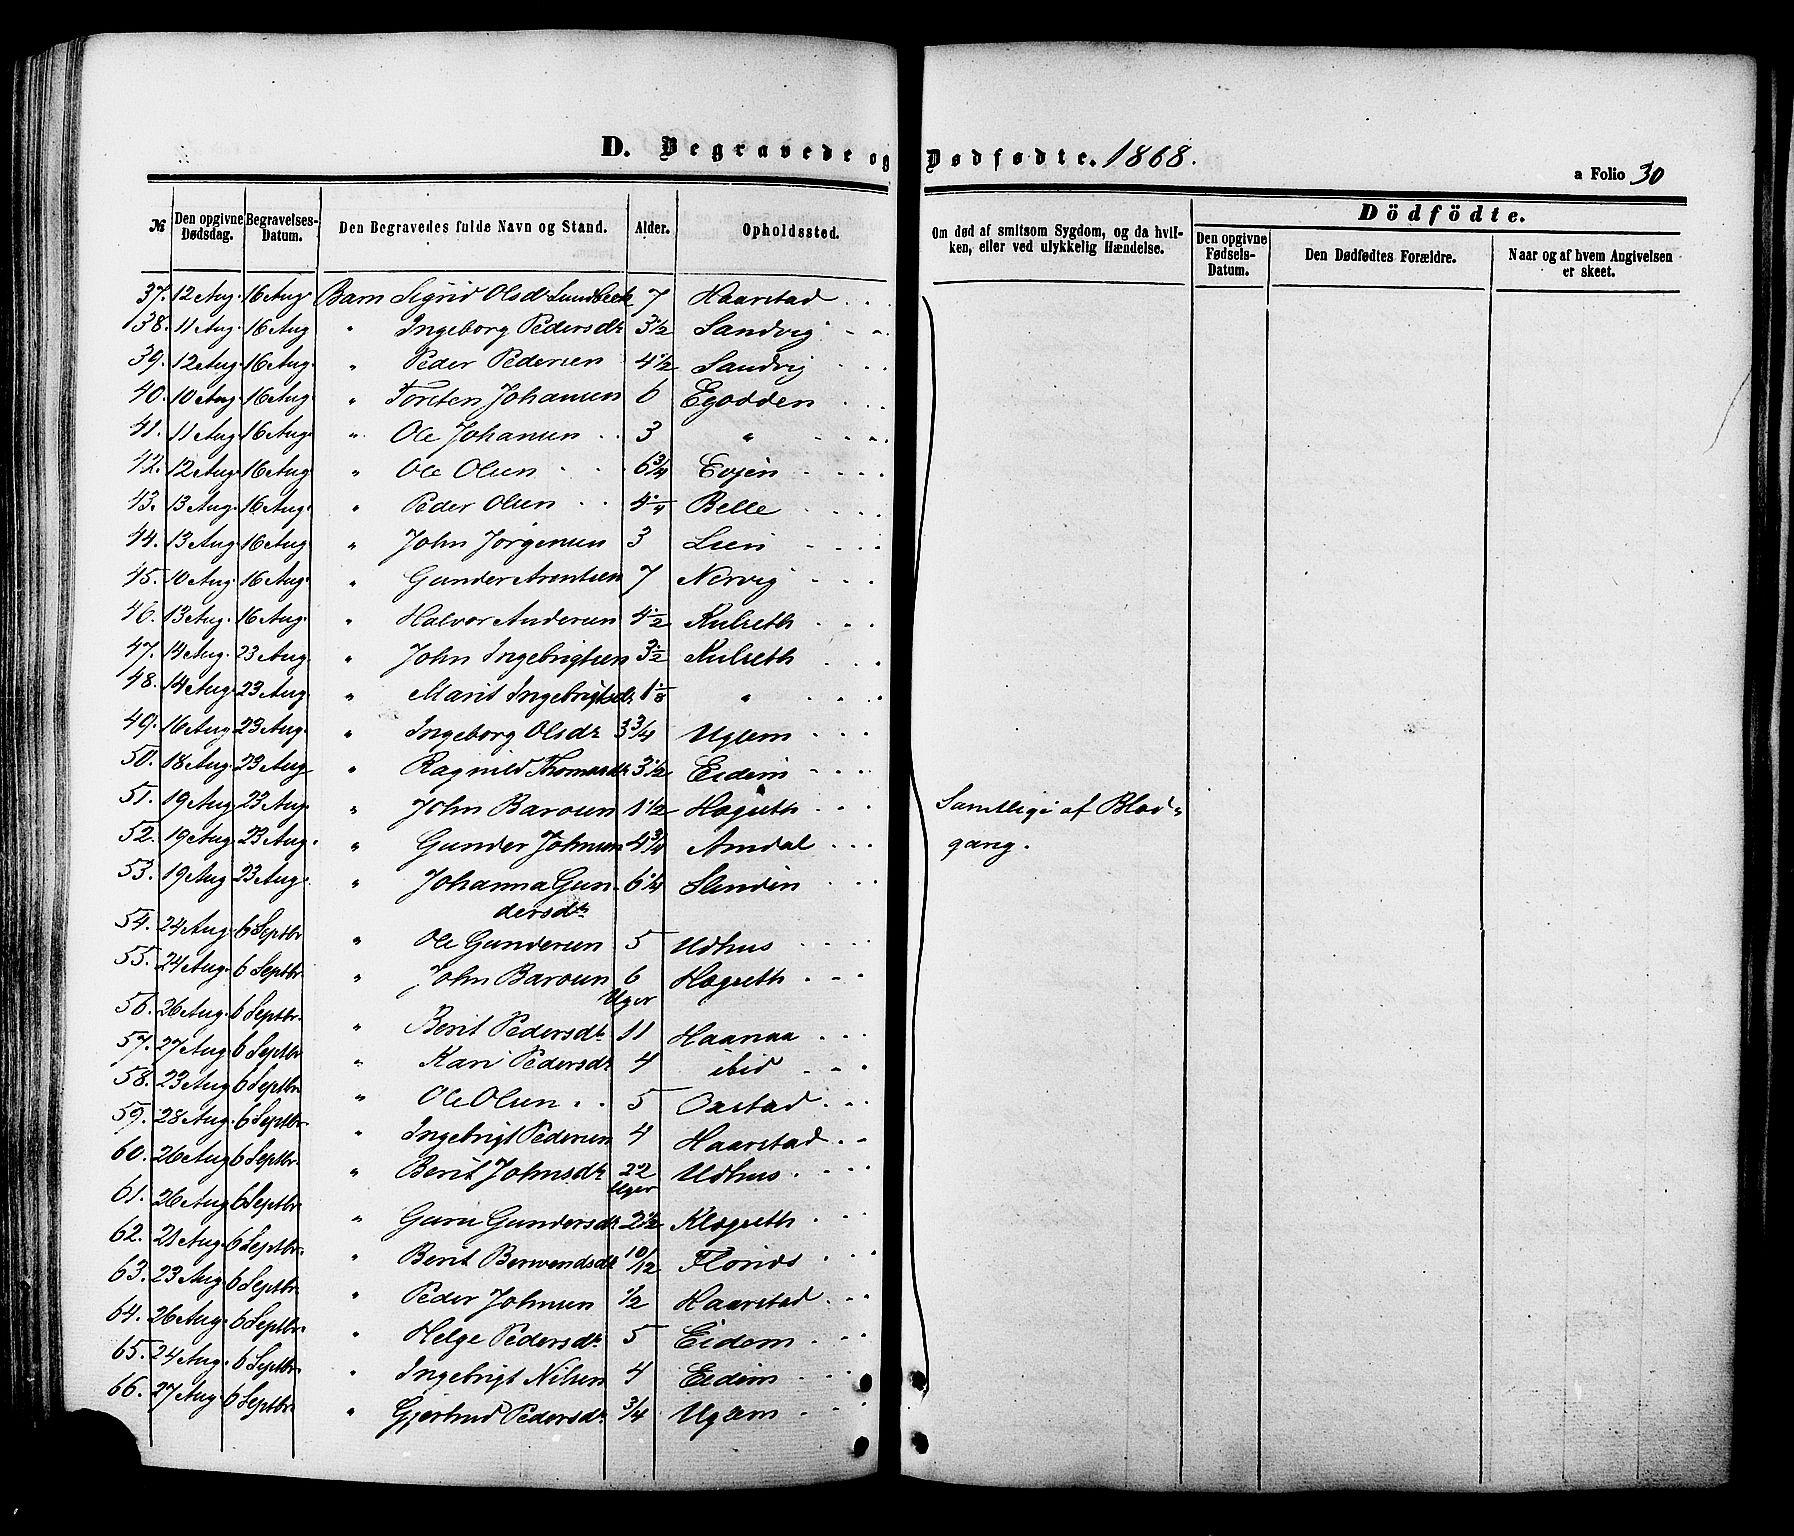 D. Begravede og Dødfødte. 1868.
a Folio 30
№ Den opgivne Dødsdag. Begravelses-Datum. Den Begravedes fulde Navn og Stand. Alder. Opholdssted. Om død af smitsom Sygdom, og da hvil-ken, eller ved ulykkelig Hændelse. Dödfödte. Den opgivne Fødsels-Datum. Den Dødfødtes Forældre. Naar og af hvem Angivelsen er skeet.
37. 12 Aug. 16 Aug. Barn Sigrid Olsdr Sundbeck 7 Haarstad
38. 11 Aug. 16 Aug " Ingeborg Pedersdr 3 1/2 Sandvig
39. 12 Aug. 16 Aug. " Peder Pedersen 4 1/2 Sandvig
40. 10 Aug. 16 Aug. " Torsten Johansen 6 Egodden
41. 11 Aug. 16 Aug. " Ole Johansen 3 "
42. 12 Aug. 16 Aug. " Ole Olsen 6 3/4 Evjen
43. 13 Aug. 16 Aug. " Peder Olsen 4 1/4 Belle
44. 13 Aug. 16 Aug. " John Jörgensen 3 Lien
45. 10 Aug. 16 Aug. " Gunder Arntsen 7 Nervig
46. 13 Aug. 16 Aug. " Halvor Andersen 4 1/2 Kulseth
47. 14 Aug. 23 Aug. " John Ingebrigtsen 3 1/2 Kulseth
48. 14 Aug. 23 Aug. " Marit Ingebrigtsdr 1 1/8 "
49. 16 Aug. 23 Aug. " Ingeborg Olsdr 3 3/4 Uglem
50. 18 Aug. 23 Aug " Ragnild Thomasdr 3 1/2 Eidem
51. 19 Aug. 23 Aug. " John Barosen 1 1/2 Høgseth Samtlige af Blod-
52. 19 Aug. 23 Aug. " Gunder Johnsen 4 3/4 Amdal gang.
53. 19 Aug 23 Aug. " Johanna Gun- 6 1/4 Slinden
dersdr
54. 24 Aug. 6 Septbr " Ole Gundersen 5 Udhus
55. 24 Aug. 6 Septbr. " John Barosen 6 Uger Høgseth
56. 26 Aug. 6 Septbr. " Berit Pedersdr 11 Haanaa
57. 27 Aug 6 Septbr. " Kari Pedersdr 4 ibid
58. 23 Aug 6 Septbr. " Ole Olsen 5 Oastad
59. 28 Aug. 6 Septbr. " Ingebrigt Pedersen 4 Haarstad
60. 26 Aug 6 Septbr. " Berit Johnsdr 22 Uger Udhus
61. 26 Aug 6 Septbr. " Guru Gundersdr 2 1/2 Klegseth
62. 21 Aug. 6 Septbr. " Berit Berwendsdr 10/12 Flonds
63. 23 Aug 6 Septbr. " Peder Johnsen 1/2 Haarstad
64. 26 Aug. 6 Septbr. " Helge Pedersdr 5 Eidem
65. 24 Aug. 6 Septbr. " Ingebrigt Nilsen 4 Eidem
66. 27 Aug. 6 Septbr. " Gjertrud Pedersdr 3/4 Uglem